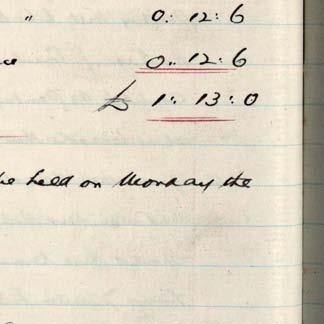 " 0: 12: 6
0.. 12: 6
£ 1: 13: 0
be held on Monday the